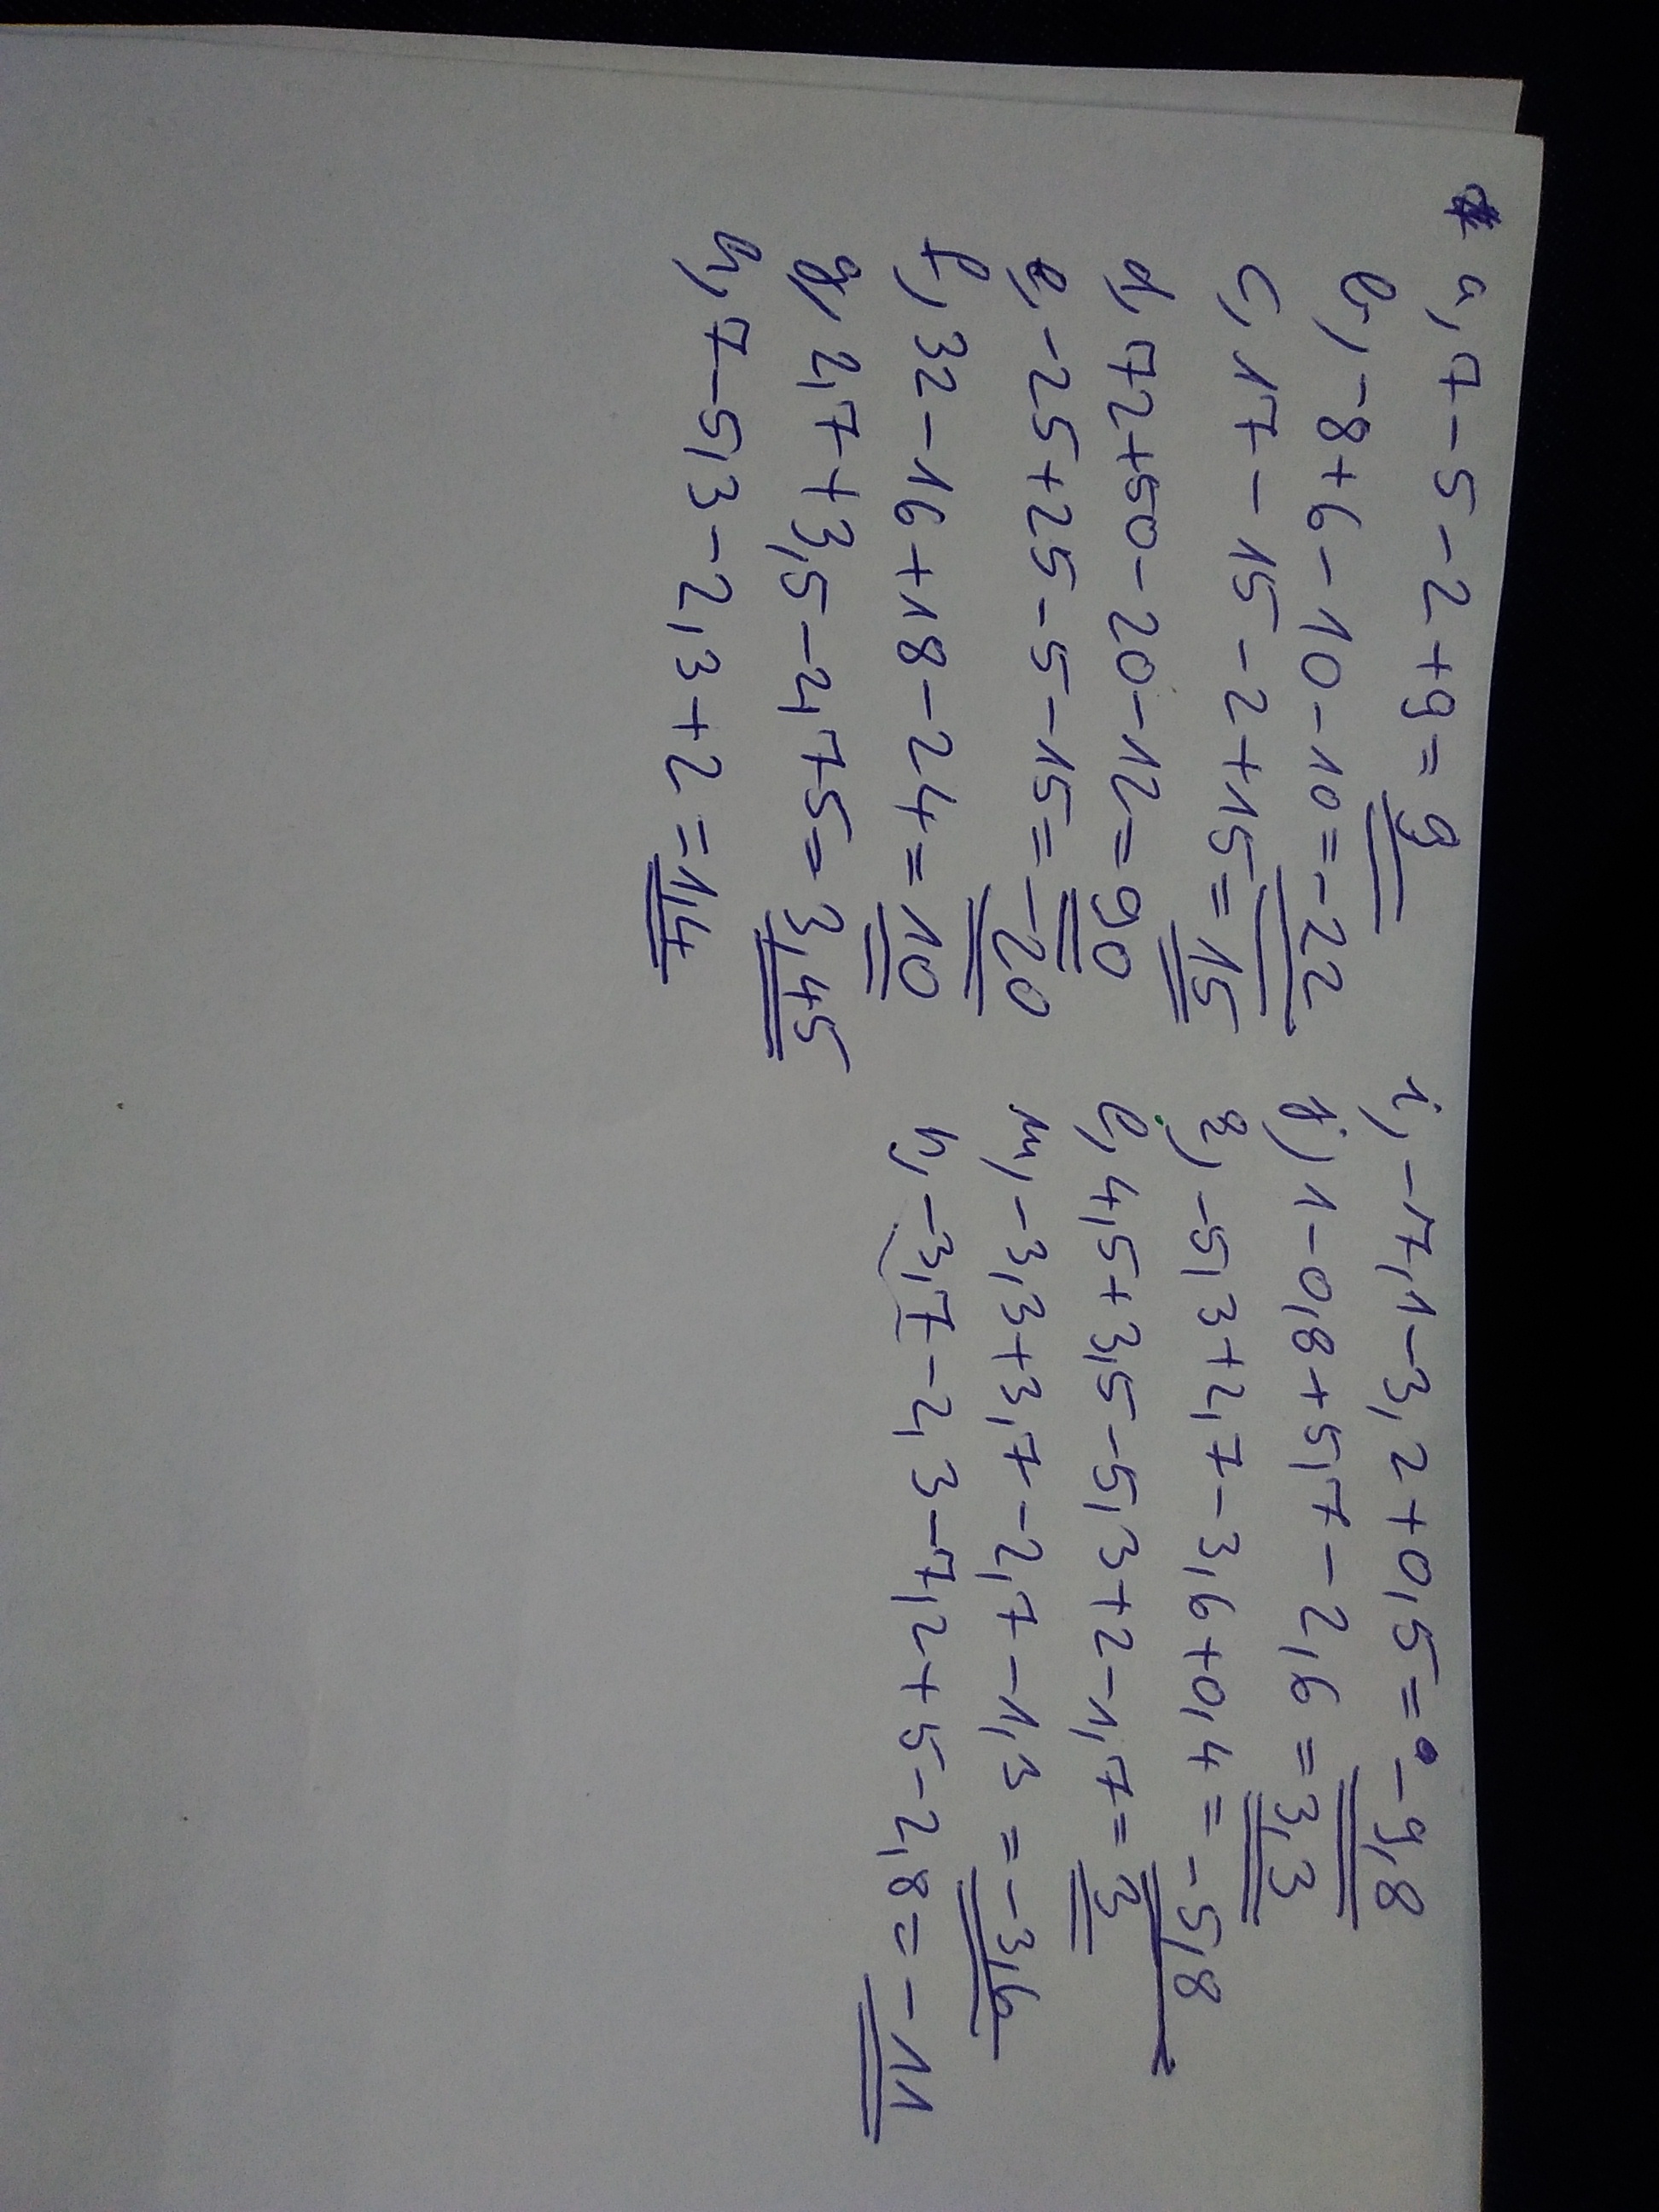 a, 7-5-2+9=9
b, -8+6-10-10=-22
c, 17-15-2+15=15
d, 72+50-20-12=90
e, -25+25-5-15=-20
f, 32-16+18-24=10
g, 2,7+3,5-2,75=3,45
h, 7-5,3-2,3+2=1,4
i, -7,1-3,2+0,5=-9,8
j, 1-0,8+5,7-2,6=3,3
k, -5,3+2,7-3,6+0,4=-5,8
l, 4,5+3,5-5,3+2-1,7=3
m, -3,3+3,7-2,7-1,3=-3,6
n, -3,7-2,3-7,2+5-2,8=-11